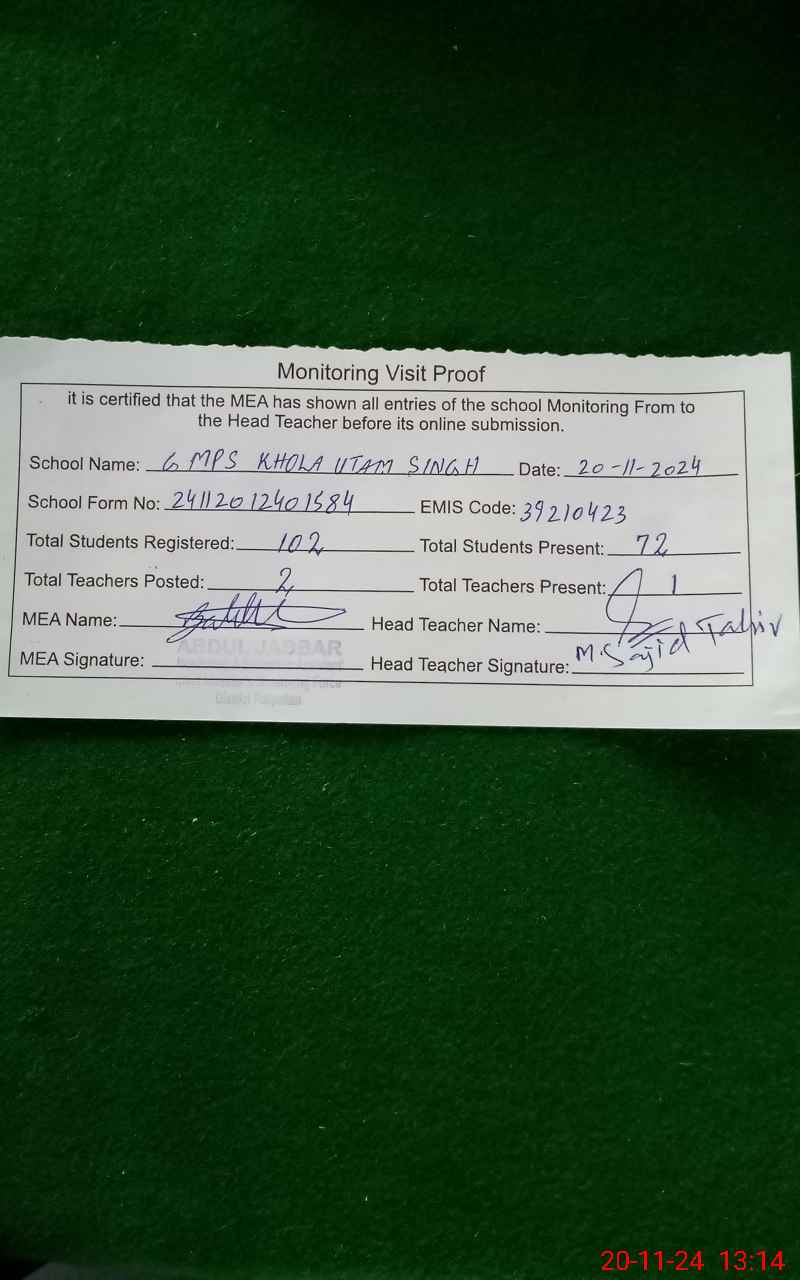 Monitoring Visit Proof
it is certified that the MEA has shown all entries of the school Monitoring From to
the Head Teacher before its online submission.
School Name: G MPS KHOLA UTAM SINGH Date: 20-11-2024
School Form No: 24112012401584 EMIS Code: 39210423
Total Students Registered: 102 Total Students Present: 72
Total Teachers Posted: 2 Total Teachers Present: 1
MEA Name: Head Teacher Name:
M. Sajid Tahir
ABDUL JABBAR
MEA Signature: Head Teacher Signature:
20-11-24 13:14